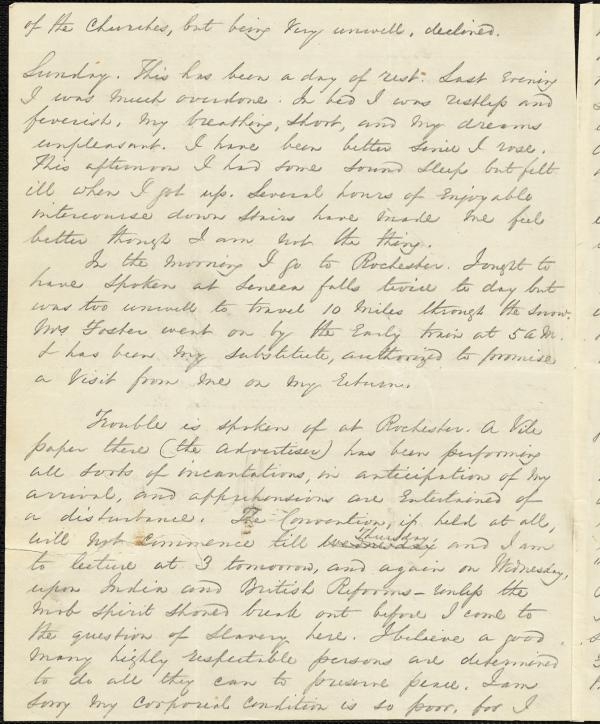 of the Churches, but being very unwell, declined.
Sunday. This has been a day of rest. Last Evening
I was much overdone. In bed I was restless and
feverish, my breathing, short, and my dreams
unpleasant. I have been better since I rose.
This afternoon I had some sound sleep but felt
ill when I got up. Several hours of Enjoyable
intercourse down stairs have made me feel
better though I am not the thing.
In the morning I go to Rochester. I ought to
have spoken at Seneca falls twice to day but
was too unwell to travel 10 miles through the snow.
Mrs Foster went on by the Early train at 5 A.M.
& has been my substitute, authorized to promise
a visit from me on my return.
Trouble is spoken of at Rochester. A vile
paper there (the advertiser) has been performing
all sorts of incantations, in anticipation of my
arrival, and apprehensions are Entertained of
a disturbance. The Convention, if held at all,
Thursday,
will not commence till wednesday and I am
to lecture at 3 tomorrow, and again on Wednesday,
upon India and British Reforms - unless the
mob spirit should break out before I come to
the question of slavery here. I believe a good
many highly respectable persons are determined
to do all they can to preserve peace. I am
sorry my corporeal condition is so poor, for I